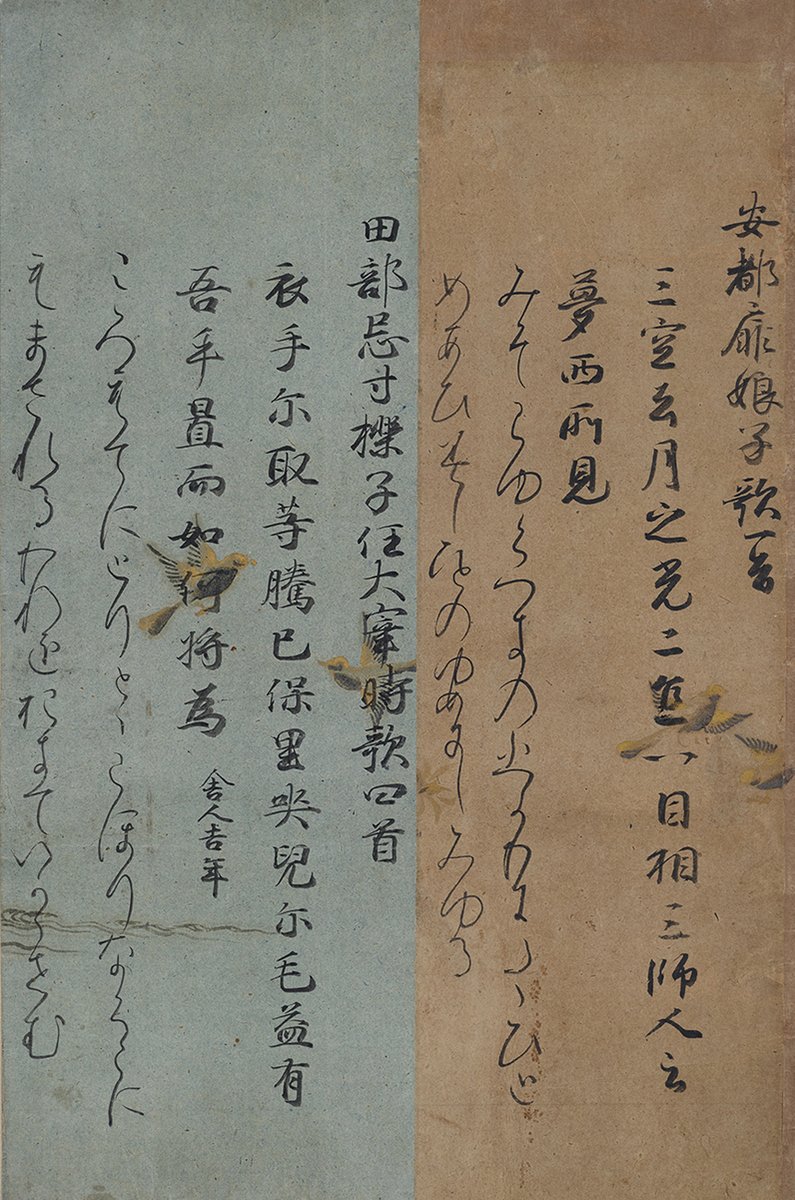 安都扉娘子歌一首
三空去月之光二直一目相三師人之
夢西所見
みそらゆくつきのひかりにたゝひと
めあひみしひとのゆめにしみゆる
田部忌寸櫟子任大宰時歌四首
衣手尓取等騰己保里哭兒尓毛益有
吾乎置而如何将為 舎人吉年
ころもてにとりとゝこほりなくこに
もまされるわれをおきていかにせむ